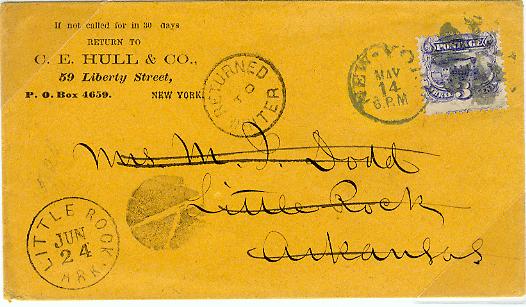 If not called for in 30 days
RETURN TO
C. E. HULL & CO.,
59 Liberty Street,
P. O. Box 4659. NEW YORK.
RETURNED
TO
WRITER
NEW YORK
MAY
14
6 P.M
POSTAGE
3
Mrs M. J. Dodd
Little Rock
Arkansas
LITTLE ROCK,
JUN
24
ARK.